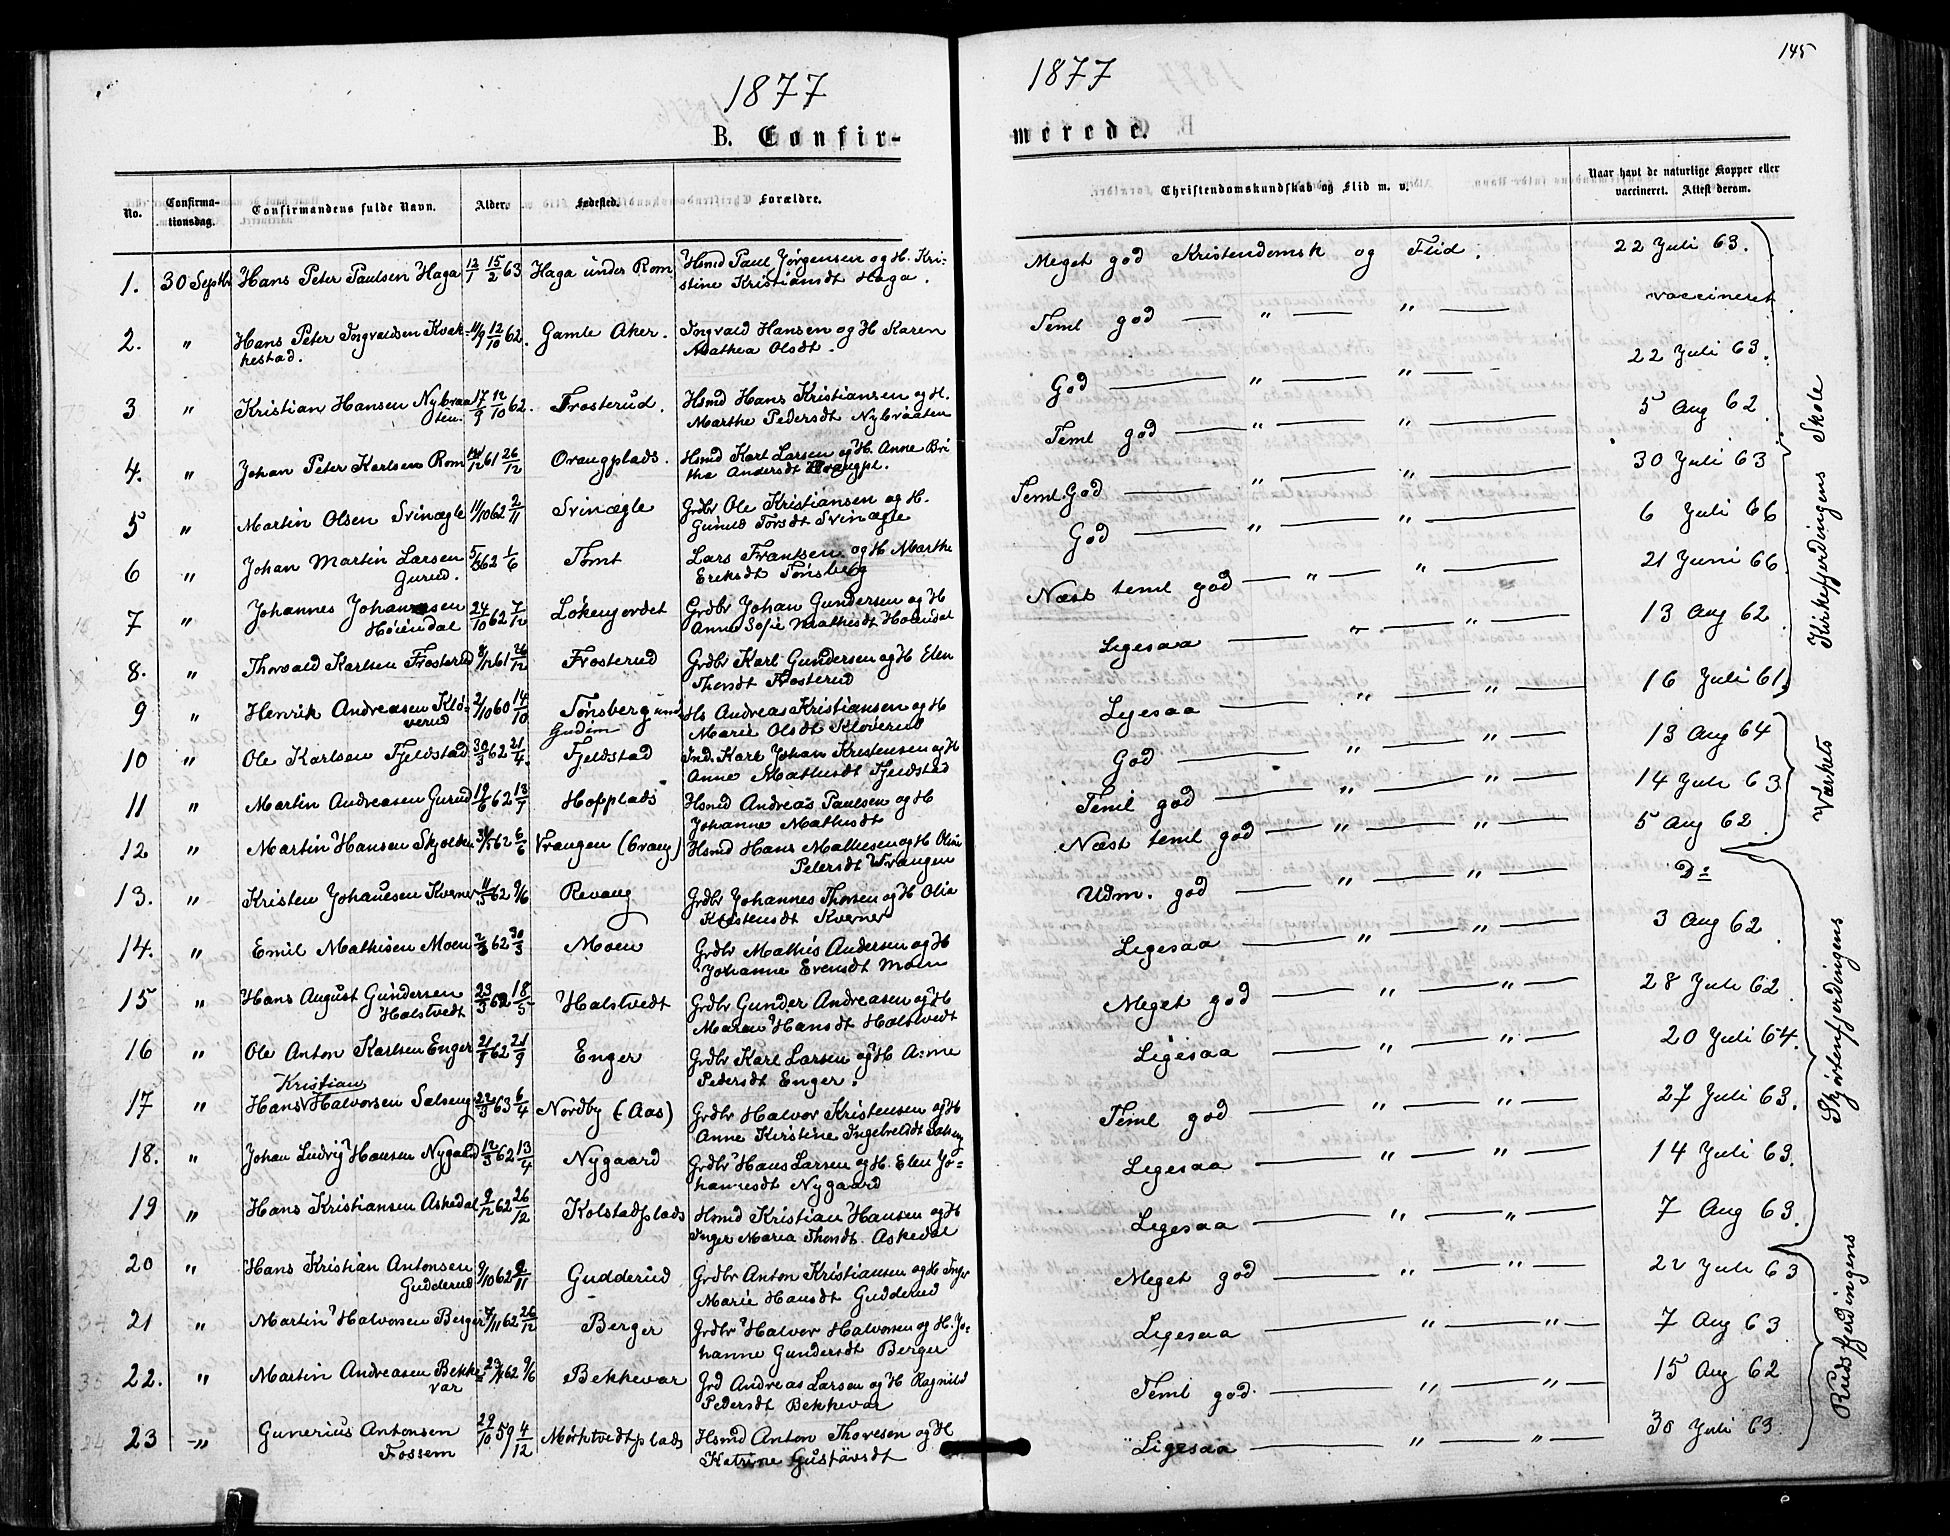 1877
1877
145
B. Confir-
merede.
No.
Confirma-
tionsdag.
Confirmandens fulde Navn.
Alder.
Fødested.
Forældre.
Christendomskundskab og Flid m. v.
Naar havt de naturlige Kopper eller
vaccineret. Attest derom.
1. 30 Septbr Hans Peter Paulsen Haga 15/2 63 Haga under Rom Hsmd Paul Jørgensen og H. Kri-
stine Kristiansdt Haga.
Meget god Kristendomsk og Flid. 22 Juli 63.
vaccineret
2. " Hans Peter Ingvaldsen Kvek- 11/9 12/10 62. Gamle Aker. Ingvald Hansen og H Karen
kestad. Mathea Olsdt.
Teml god — " — " — 22 Juli 63.
3 " Kristian Hansen Nybraa 17/9 12/10 62. Frosterud. Hsmd Hans Kristiansen og H.
ten. Marthe Pedersdt Nybraaten
God — " — " — 5 Aug 62.
4. " Johan Peter Karlsen Rom 14/12 61 26/12 Orangplads. Hsmd Karl Larsen og H. Anne Bri
the Andersdt
Teml god — " — " — 30 Juli 63
5 " Martin Olsen Svinægle 11/10 62 2/11 Svinægle Grdbr Ole Kristiansen og H.
Gunild Torsdt Svinægle
Teml. God — " — " — 6 Juli 66
6 " Johan Martin Larsen 62 1/6 Tømt Lars Frantsen og H Marthe
Gurud. Eriksdt Tønsberg
God — " — " — 21 Juni 66
7 " Johannes Johannesen 24/10 62 7/12 Løkenjordet Grdbr Johan Gundersen og H
Høiendal Anne Sofie Mathisdt Høiendal
Næst teml god — " — " — 13 Aug 62.
8. " Thorvald Karlsen Frosterud 8/12 61 26/12 Frosterud Grdbr Karl Gundersen og H Elen
Thorsdt Frosterud
Ligesaa — " — " — 16 Juli 61.
9 " Henrik Andreasen Klø- 2/10 60 14/10 Tønsberg und Hs Andreas Kristiansen og H
verud Gudim Marie Olsdt Kløverud
Ligesaa — " — " — 13 Aug 64
10 " Ole Karlsen Fjeldstad 30/3 62 21/4. Fjeldstad Ind. Karl Johan Kristensen og H
Anne Mathisdt Fjeldstad
God — " — " — 14 Juli 63.
11 " Martin Andreasen Gurud 19/6 62 13/7 Hofplads Hsmd Andreas Paulsen og H
Johanne Mathisdt
Teml god — " — " — 5 Aug 62.
12 " Martin Hansen Skjolden 31/5 62 6/6 Vrangen (Orang) Hsmd Hans Mathiesen og H Oline
Petersdt Wrangen
Næst teml god — " — " — Do
13. " Kristen Johansen Kverner 11/5 62 9/6 Revaug Grdbr Johannes Thorsen og H Olia
Kristensdt Kverner
Udm. god — " — " — 3 Aug 62.
14. " Emil Mathisen Moen 2/3 62 30/3 Moen Grdbr Mathis Andersen og H
Johanne Evensdt Moen
Ligesaa — " — " — 28 Juli 62.
15 " Hans August Gundersen 23/3 62 18/5 Halstvedt Grdbr Gunder Andreasen og H
Halstvedt Maren Hansdt Halstvedt
Meget god — " — " — 20 Juli 64.
16 " Ole Anton Karlsen Enger 62 21/9 Enger Grdbr Karl Larsen og H Anne
Pedersdt Enger.
Ligesaa — " — " — 27 Juli 63.
17 " Hans Kristian Halvorsen Salseng 22/3 63 6/4 Nordby (Aas) Grdbr Halvor Kristensen og H
Anne Kirstine Ingebretsdt Salseng
Teml god — " — " — 14 Juli 63.
18. " Johan Ludvig Hansen Nygaard 12/3 62 13/4 Nygaard Grdbr Hans Larsen og H. Elen Jo-
hannesdt Nygaard
Ligesaa — " — " — 7 Aug 63.
19 " Hans Kristiansen Askedal 9/12 62 26/12 Kolstadplads Hsmd Kristian Hansen og H
Inger Maria Thorsdt. Askedal
Ligesaa — " — " — 22 Juli 63
20 " Hans Kristian Antonsen 9/10 62 9/11 Gudderud Grdbr Anton Kristiansen og H Inger
Gudderud Marie Hansdt Gudderud
Meget god — " — " — 7 Aug 63
21 " Martin Halvorsen Berger 7/11 62 26/12 Berger Grdbr Halvor Halvorsen og H. Jo-
hanne Gundersdt Berger
Ligesaa — " — " — 15 Aug 62
22. " Martin Andreasen Bekke- 62 9/6 Bekkevar Grd Andreas Larsen og H Ragnild
var Pedersdt Bekkevar
Teml god. — " — " — 30 Juli 63.
23 " Gunerius Antonsen 29/10 59 4/12 Mørktvedtplads Hsmd Anton Thoresen og H
Fossem Katrine Gustavsdt
Ligesaa — " — " —
Kirkefjerdingens Skole
Værkets
Skjørtenfjerdingens
Rudsfjerdingens